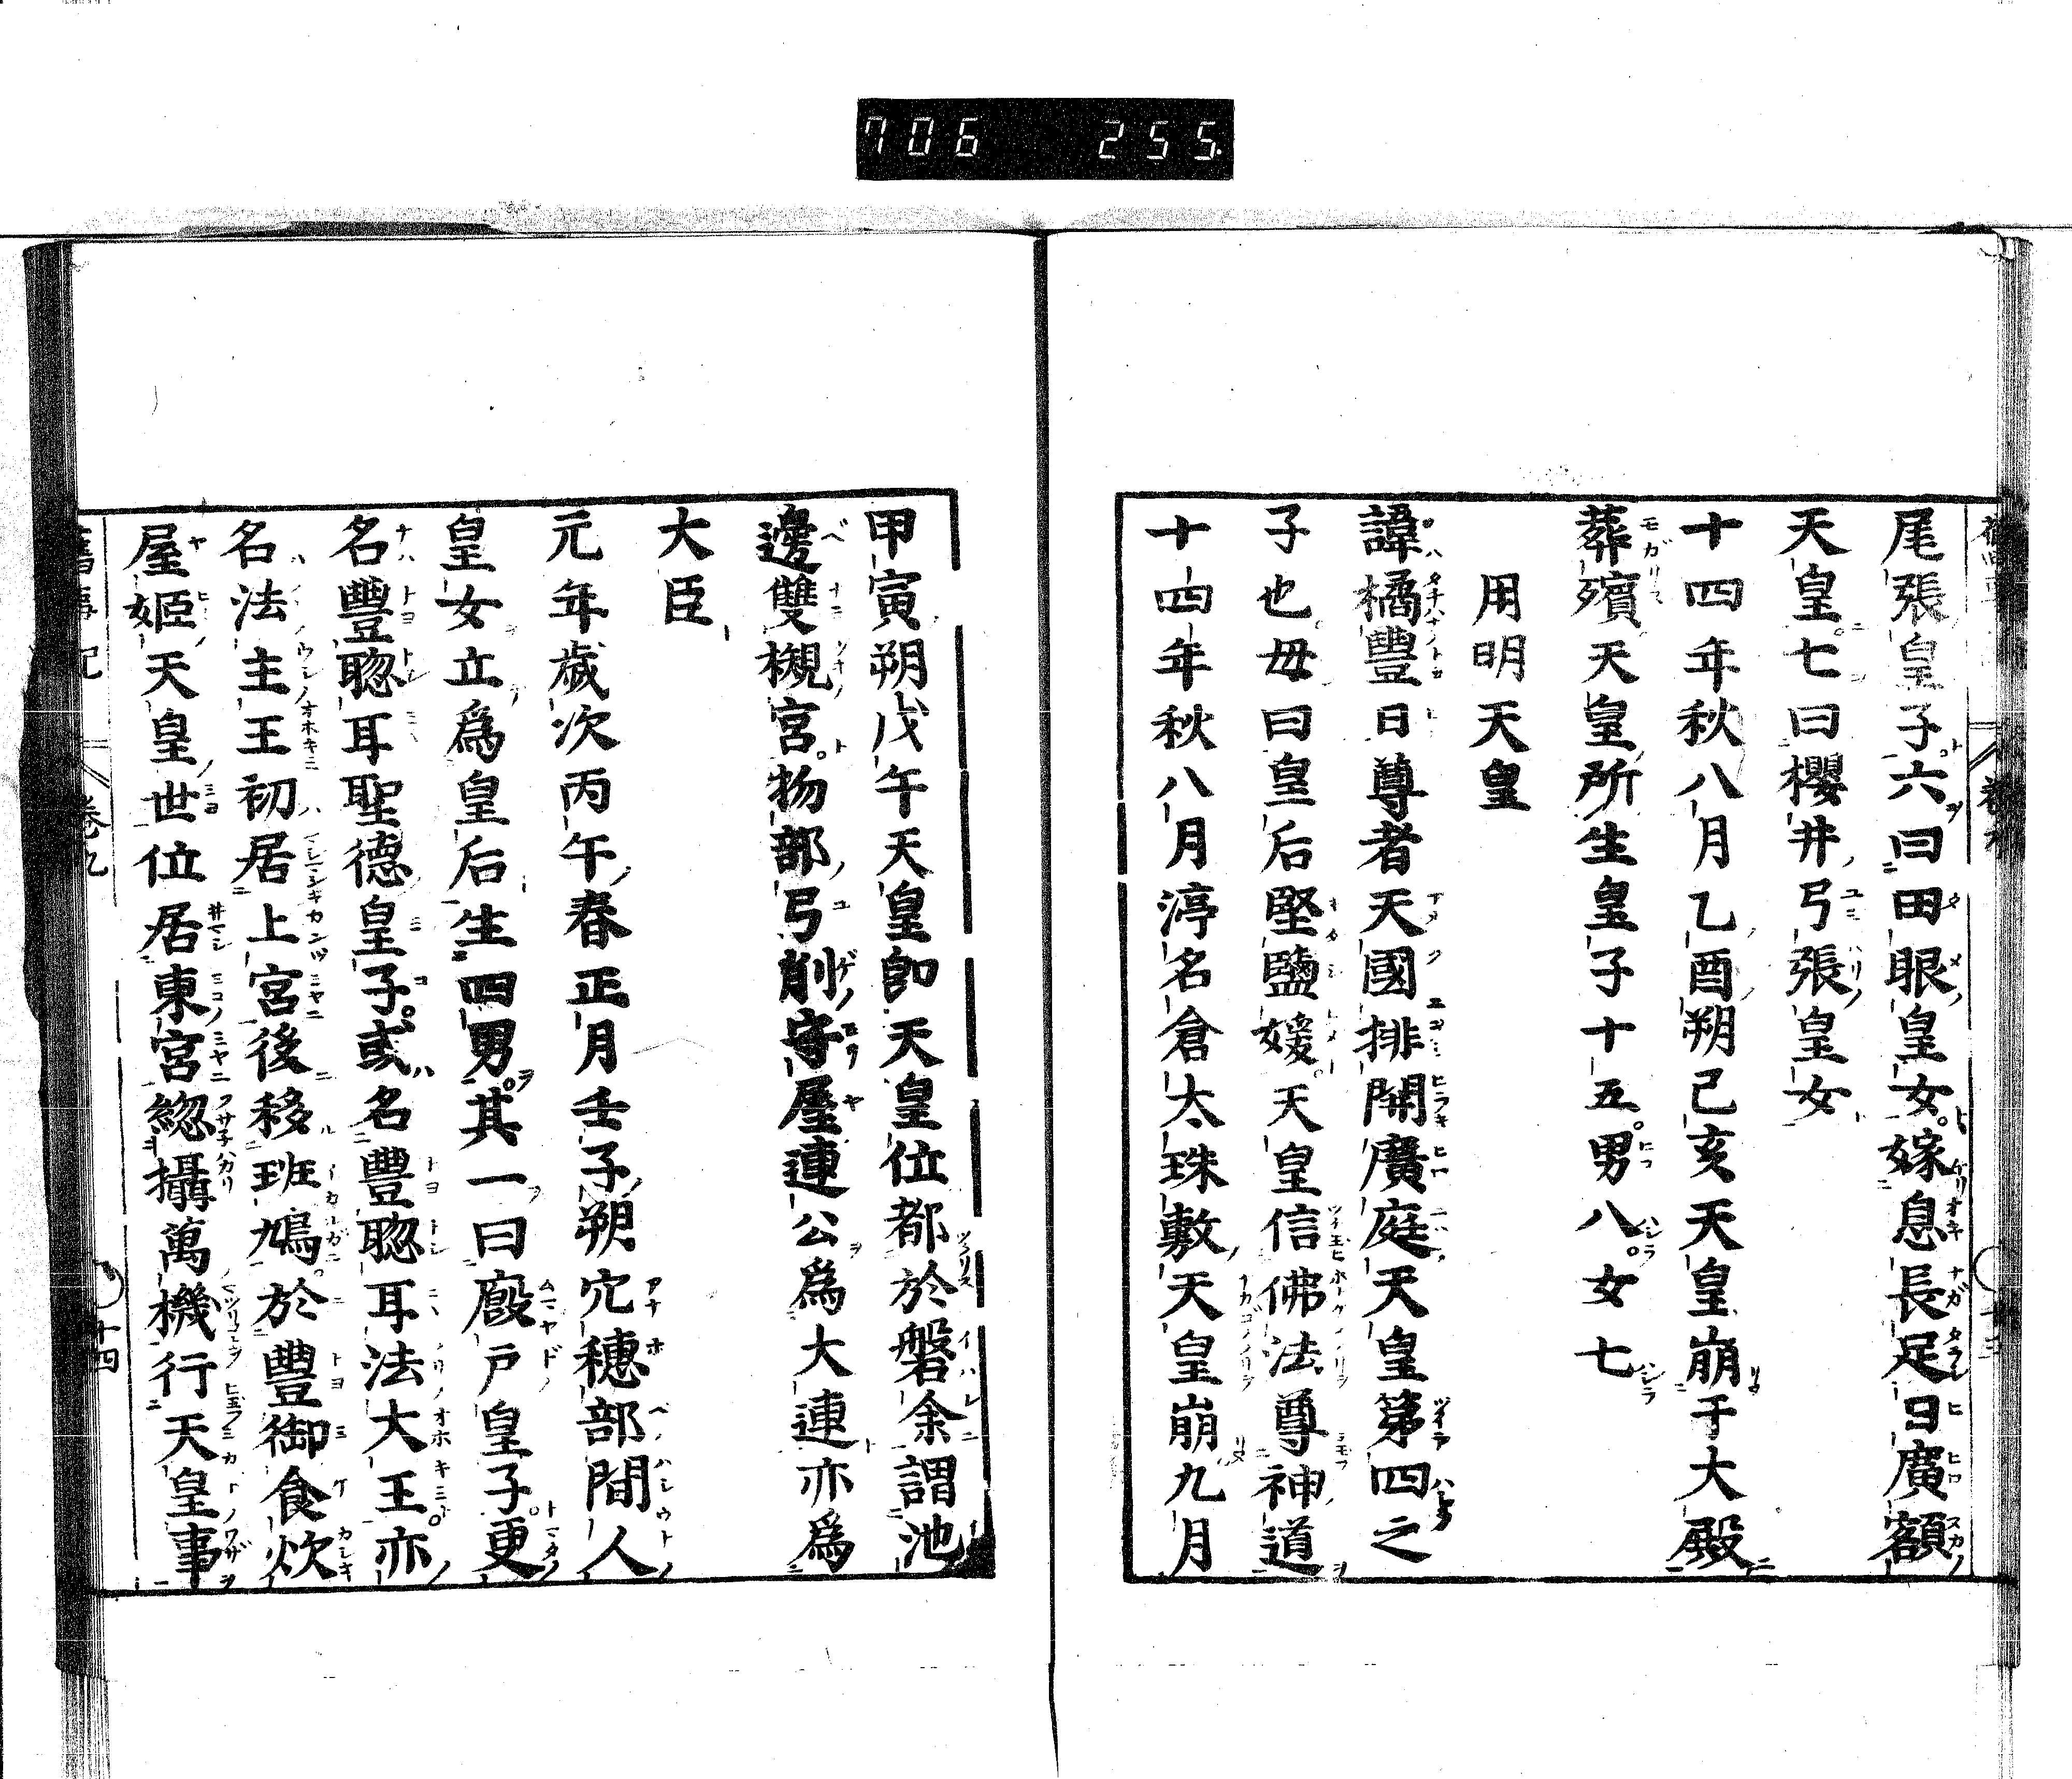 706 255.
尾張皇子六曰田眼皇女嫁息長足日廣額
天皇七曰櫻井弓張皇女
十四年秋八月乙酉朔己亥天皇崩于大殿
葬殯天皇所生皇子十五男八女七
用明天皇
諱橘豐日尊者天國排開廣庭天皇第四之
子也母曰皇后堅鹽媛天皇信佛法尊神道
十四年秋八月渟名倉太珠敷天皇崩九月
甲寅朔戊午天皇卽天皇位都於磐余謂池
邊雙槻宮物部弓削守屋連公爲大連亦爲
大臣
元年歲次丙午春正月壬子朔穴穗部間人
皇女立爲皇后生四男其一曰廐戸皇子更
名豐聦耳聖德皇子或名豐聦耳法大王亦
名法主王初居上宮後移班鳩於豐御食炊
屋姬天皇世位居東宮緫攝萬機行天皇事
舊事記 卷九 十四